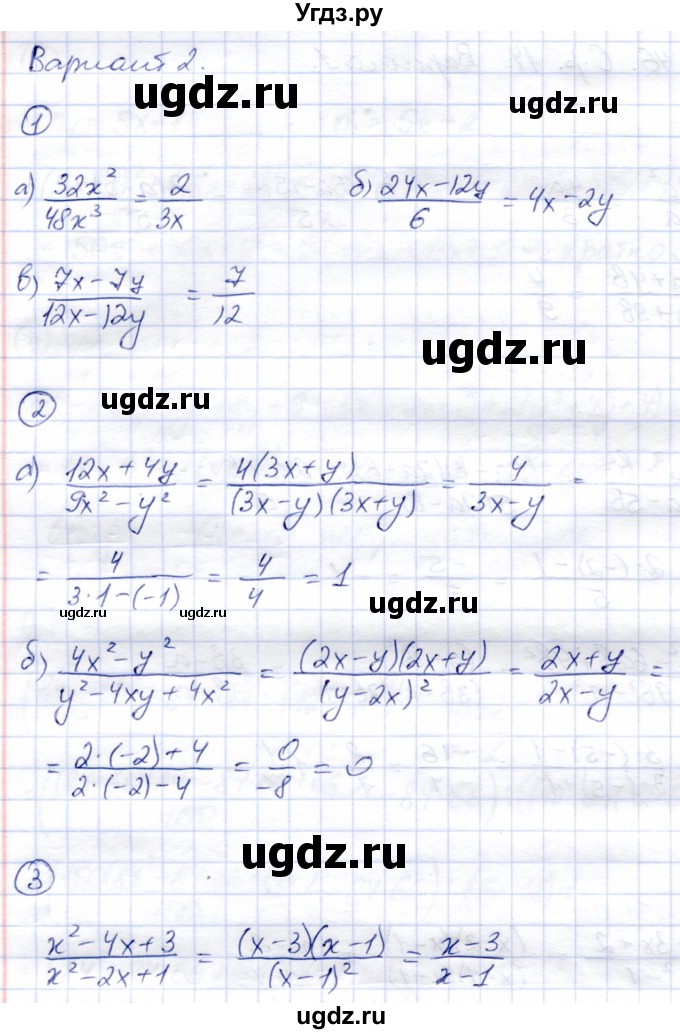 Угдз.ру
Вариант 2.
ugdz.ru
ugdz.ru
1
а) 32x²/48x³ = 2/3x б) 24x-12y/6 = 4x-2y
в) 7x-7y/12x-12y = 7/12
ugdz.ru
ugdz.ru
2
а) 12x+4y/9x²-y² = 4(3x+y)/(3x-y)(3x+y) = 4/3x-y =
= 4/3·1-(-1) = 4/4 = 1
ugdz.ru
ugdz.ru ugdz.ru
б) 4x²-y²/y²-4xy+4x² = (2x-y)(2x+y)/(y-2x)² = 2x+y/2x-y =
= 2·(-2)+4/2·(-2)-4 = 0/-8 = 0
ugdz.ru
3
x²-4x+3/x²-2x+1 = (x-3)(x-1)/(x-1)² = x-3/x-1
ugdz.ru